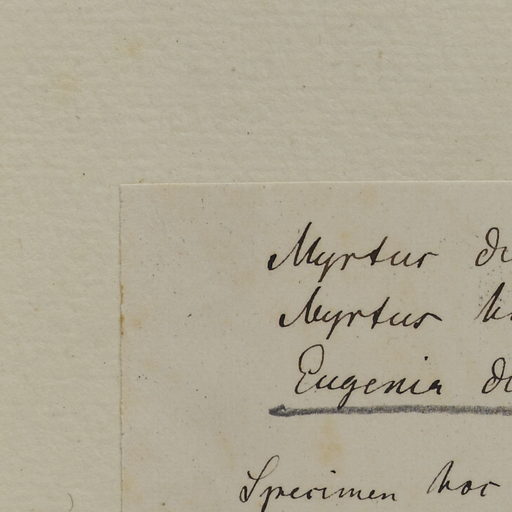 Myrtus di
Myrtus
Eugenia di
Specimen hoc